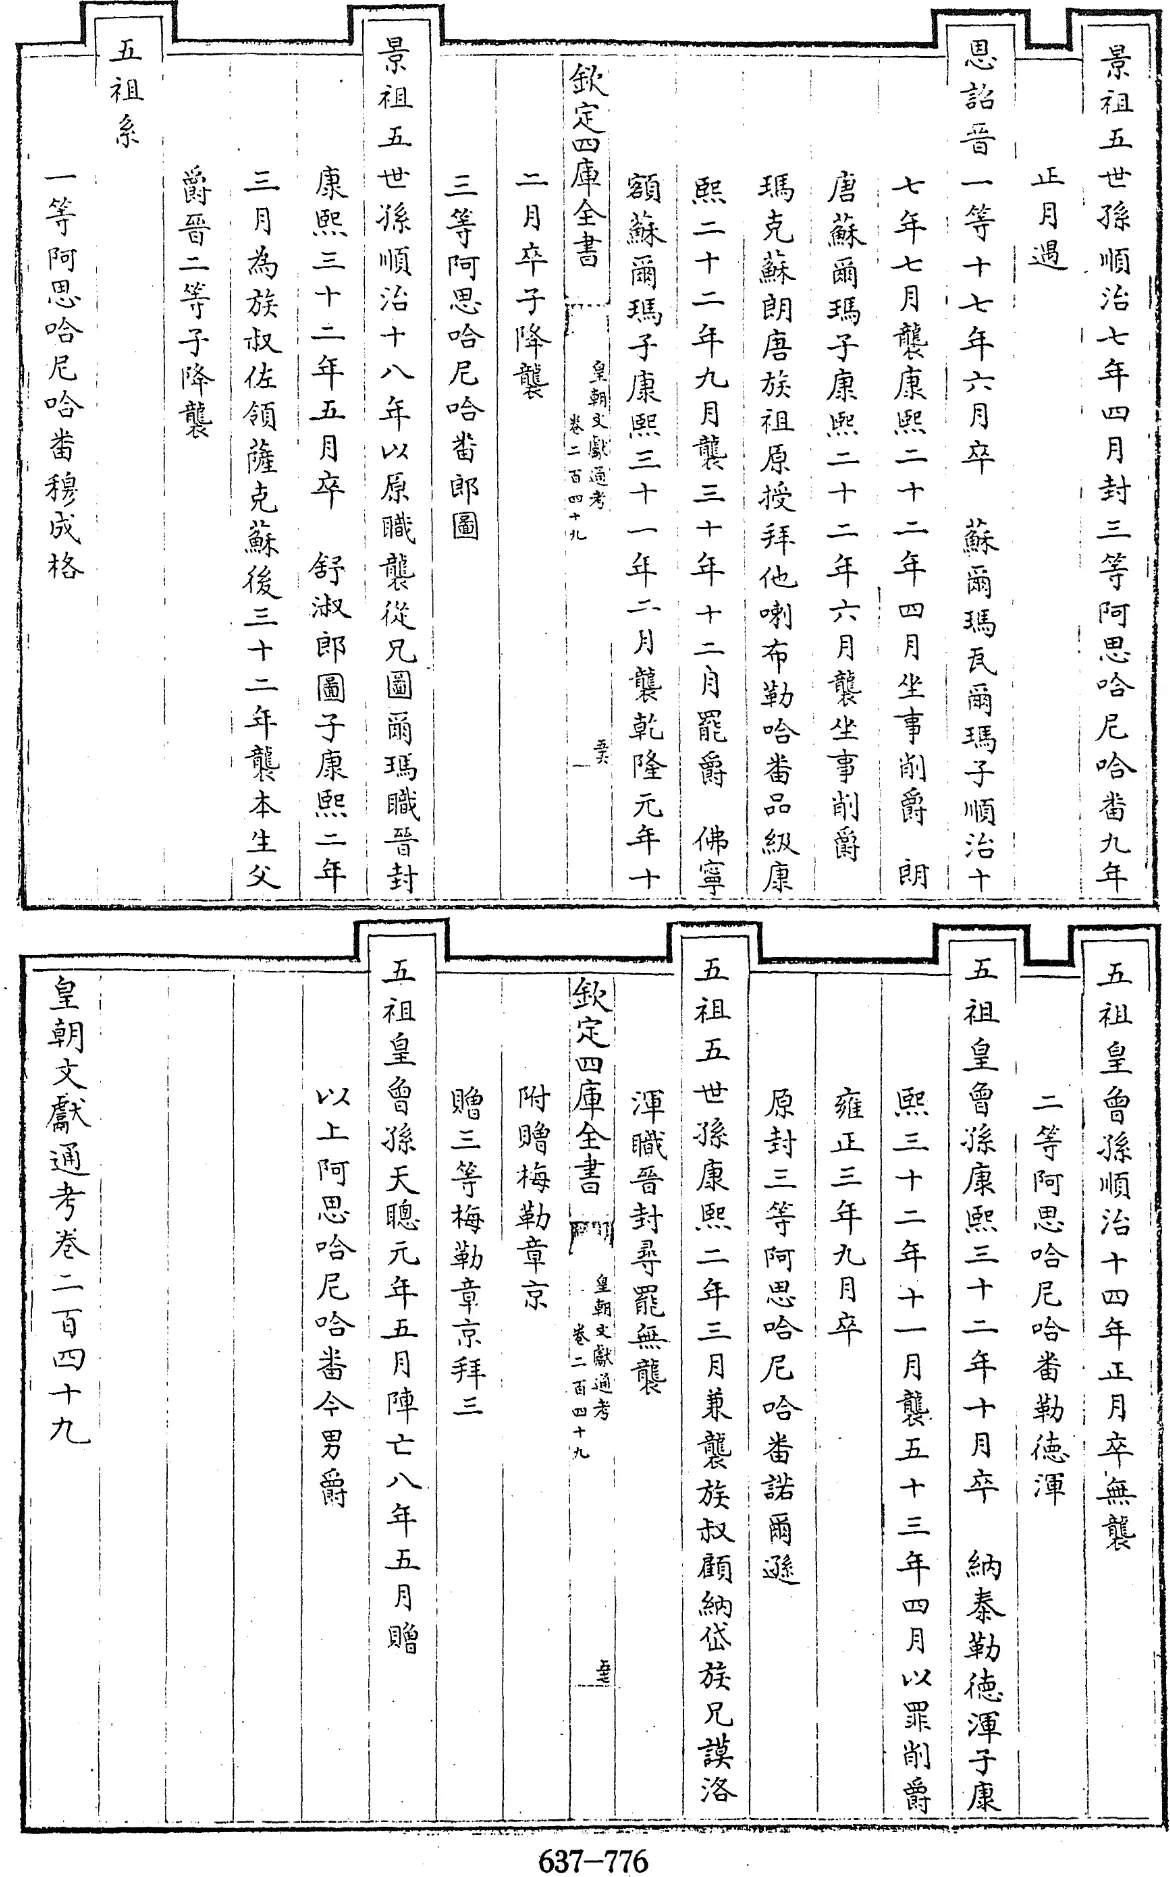 景祖五世孫順治七年四月封三等阿思哈尼哈番九年
正月遇
恩詔晉一等十七年六月卒　蘇爾瑪瓦爾瑪子順治十
七年七月襲康熙二十二年四月坐事削爵　朗
唐蘇爾瑪子康熙二十二年六月襲坐事削爵
瑪克蘇朗唐族祖原授拜他喇布勒哈番品級康
熙二十二年九月襲三十年十二月罷爵　佛寧
額蘇爾瑪子康熙三十一年二月襲乾隆元年十
欽定四庫全書
皇朝文獻通考
卷二百四十九
五六
二月卒子降襲
三等阿思哈尼哈番郎圖
景祖五世孫順治十八年以原職襲從兄圖爾瑪職晉封
康熙三十二年五月卒　舒淑郎圖子康熙二年
三月為族叔佐領薩克蘇後三十二年襲本生父
爵晉二等子降襲
五祖系
一等阿思哈尼哈番穆成格
五祖皇曾孫順治十四年正月卒無襲
二等阿思哈尼哈番勒德渾
五祖皇曾孫康熙三十二年十月卒　納泰勒德渾子康
熙三十二年十一月襲五十三年四月以罪削爵
雍正三年九月卒
原封三等阿思哈尼哈番諾爾遜
五祖五世孫康熙二年三月兼襲族叔顧納岱族兄謨洛
渾職晉封尋罷無襲
欽定四庫全書
皇朝文獻通考
卷二百四十九
五七
附贈梅勒章京
贈三等梅勒章京拜三
五祖皇曾孫天聰元年五月陣亡八年五月贈
以上阿思哈尼哈番今男爵
皇朝文獻通考卷二百四十九
637-776